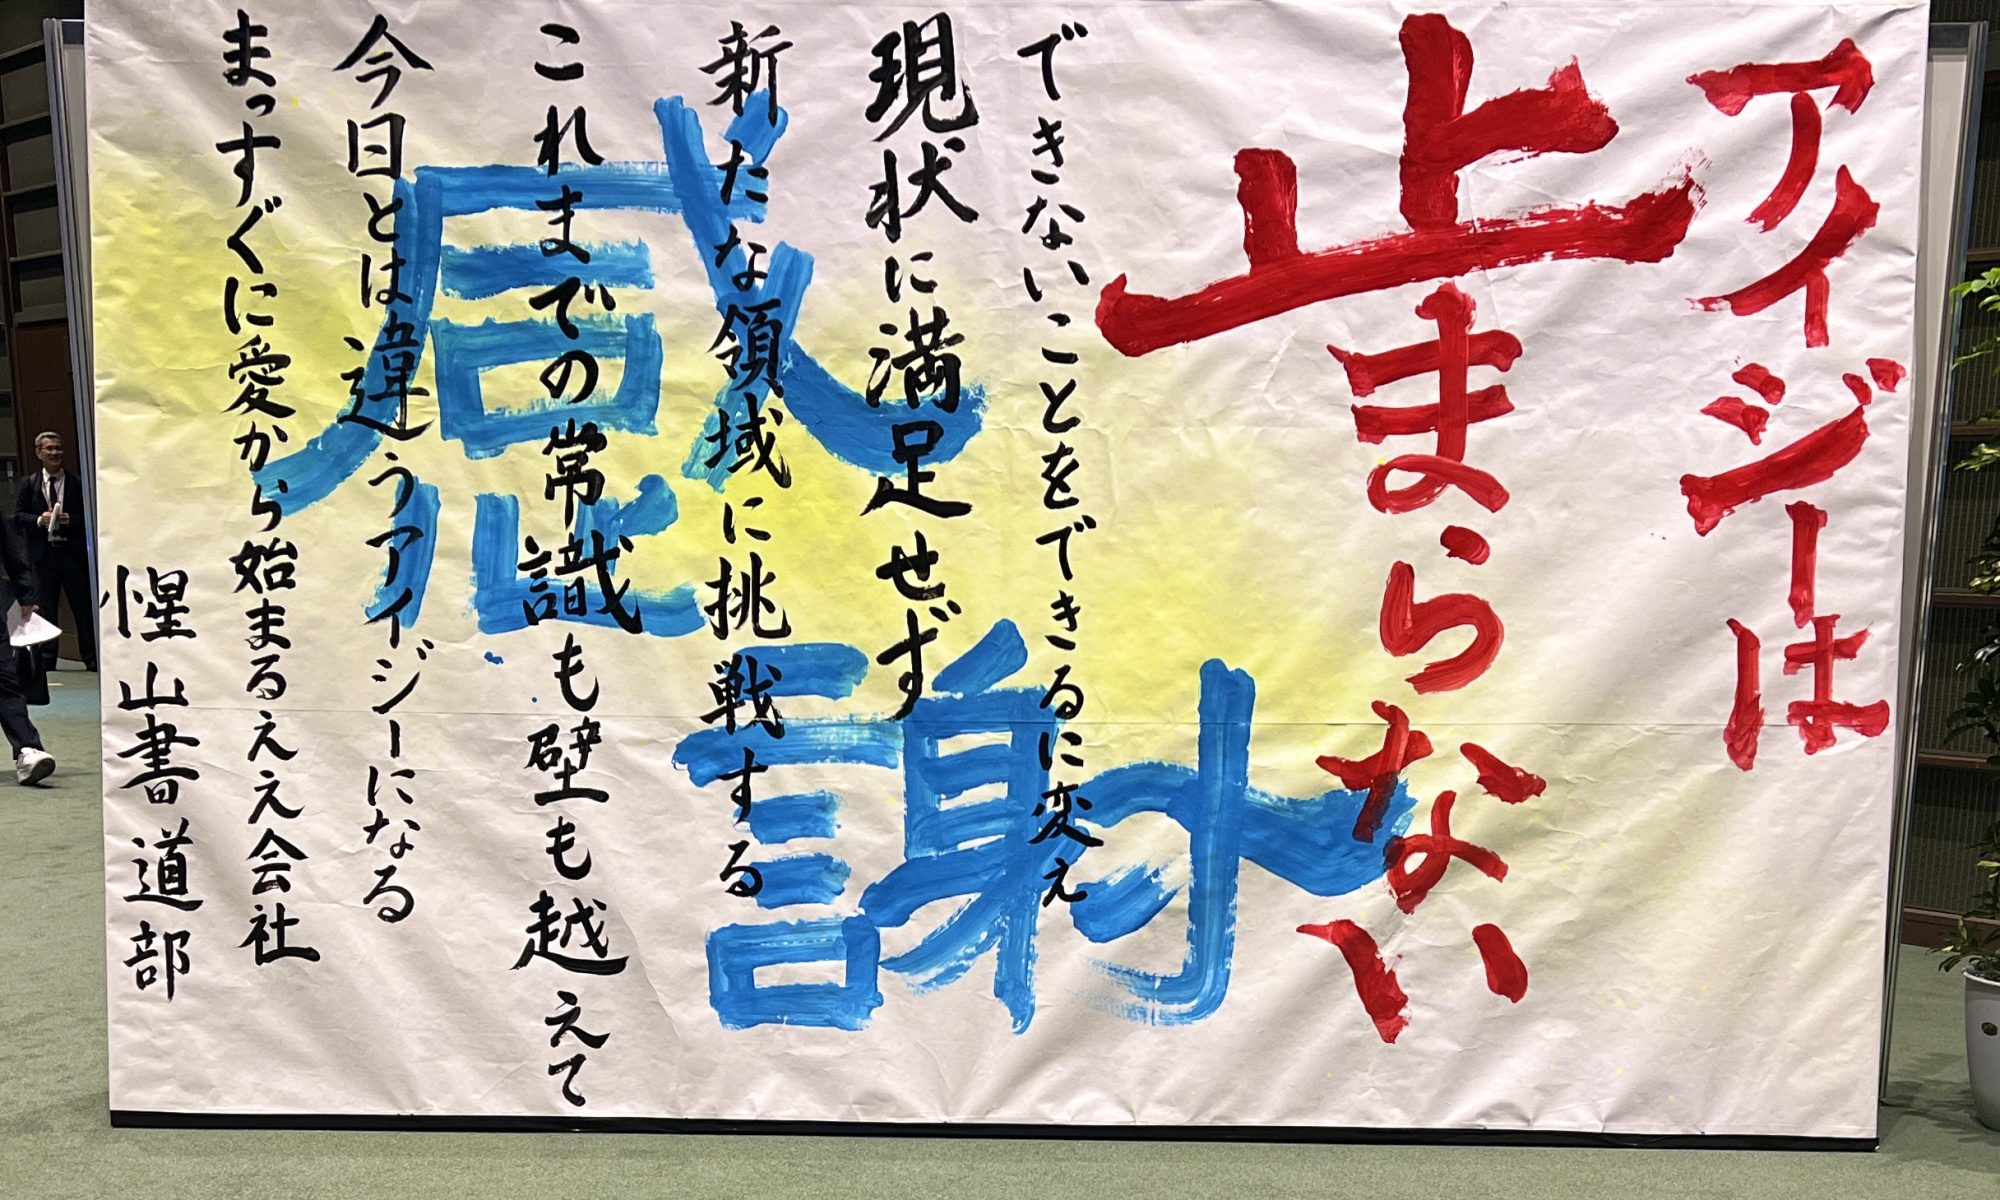 アイジーは
止まらない
できないことをできるに変え
現状に満足せず
新たな領域に挑戦する
これまでの常識も壁も越えて
今日とは違うアイジーになる
まっすぐに愛から始まるええ会社
惺山書道部
感謝